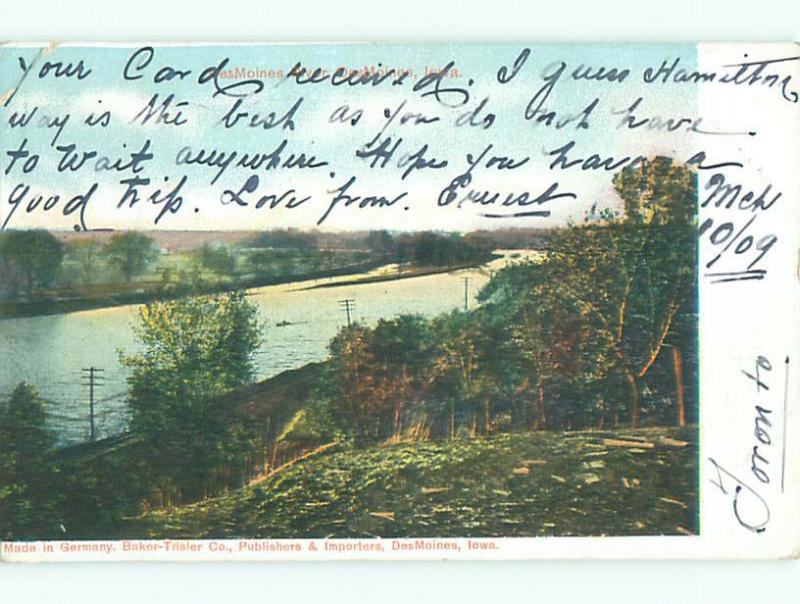 DesMoines River, DesMoines, Iowa.
Your Card received. I guess Hamilton
way is the best as you do not have
to Wait anywhere. Hope you have a
good trip. Love from. Ernest
Mch
10/09
Made in Germany. Baker-Trisler Co., Publishers & Importers, DesMoines, Iowa.